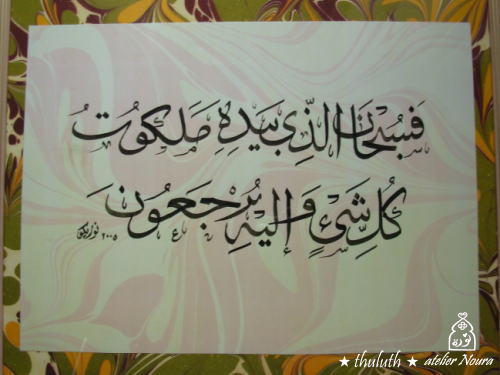 فَسُبْحَانَ الَّذِي بِيَدِهِ مَلَكُوتُ
كُلِّ شَيْءٍ وَإِلَيْهِ تُرْجَعُونَ
٢٠٠٥
★ thuluth ★ atelier Noura